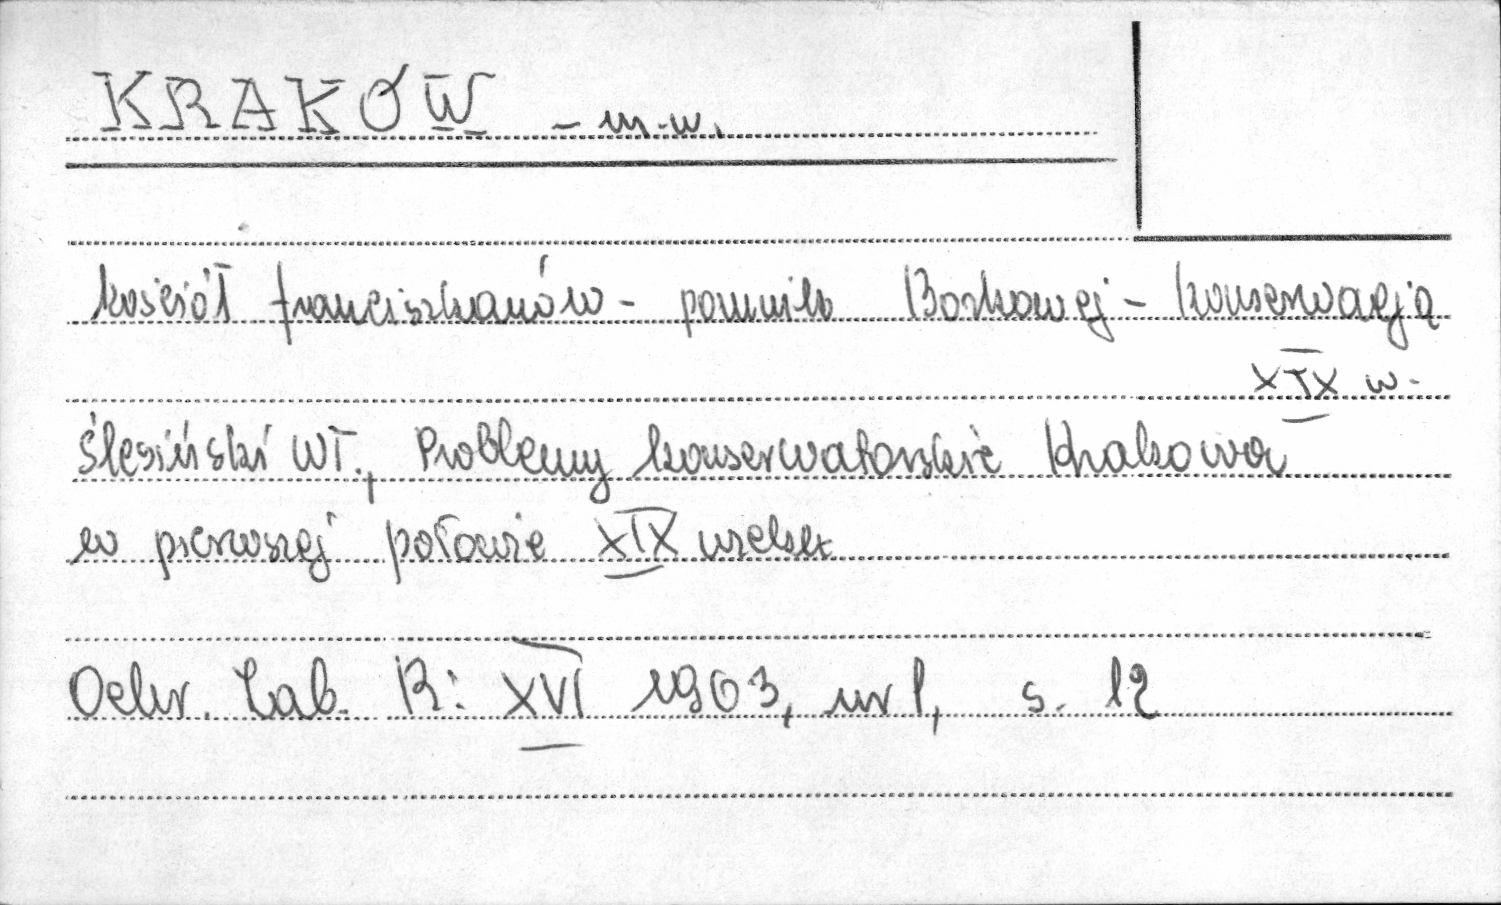 KRAKÓW - m.w.
kościół franciszkanów - pomnik Boskowej - konserwacja
XIX w.
Ślesiński Wł., Problemy konserwatorskie Krakowa
w pierwszej połowie XIX wieku
Ochr. Zab. R: XVI 1963, nr 1, s. 12